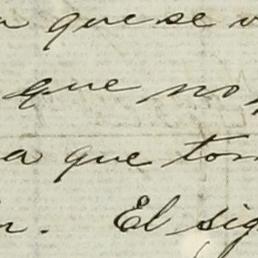 que se
que no
a que tom
El sig